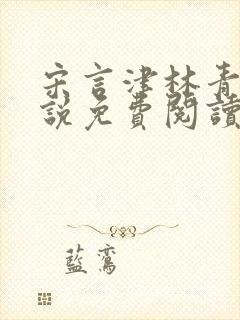 宋言津林青
說免費閱讀
藍鸞